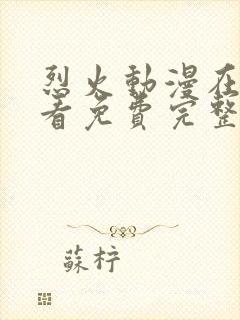 烈火動漫在
看免費完整
蘇柠